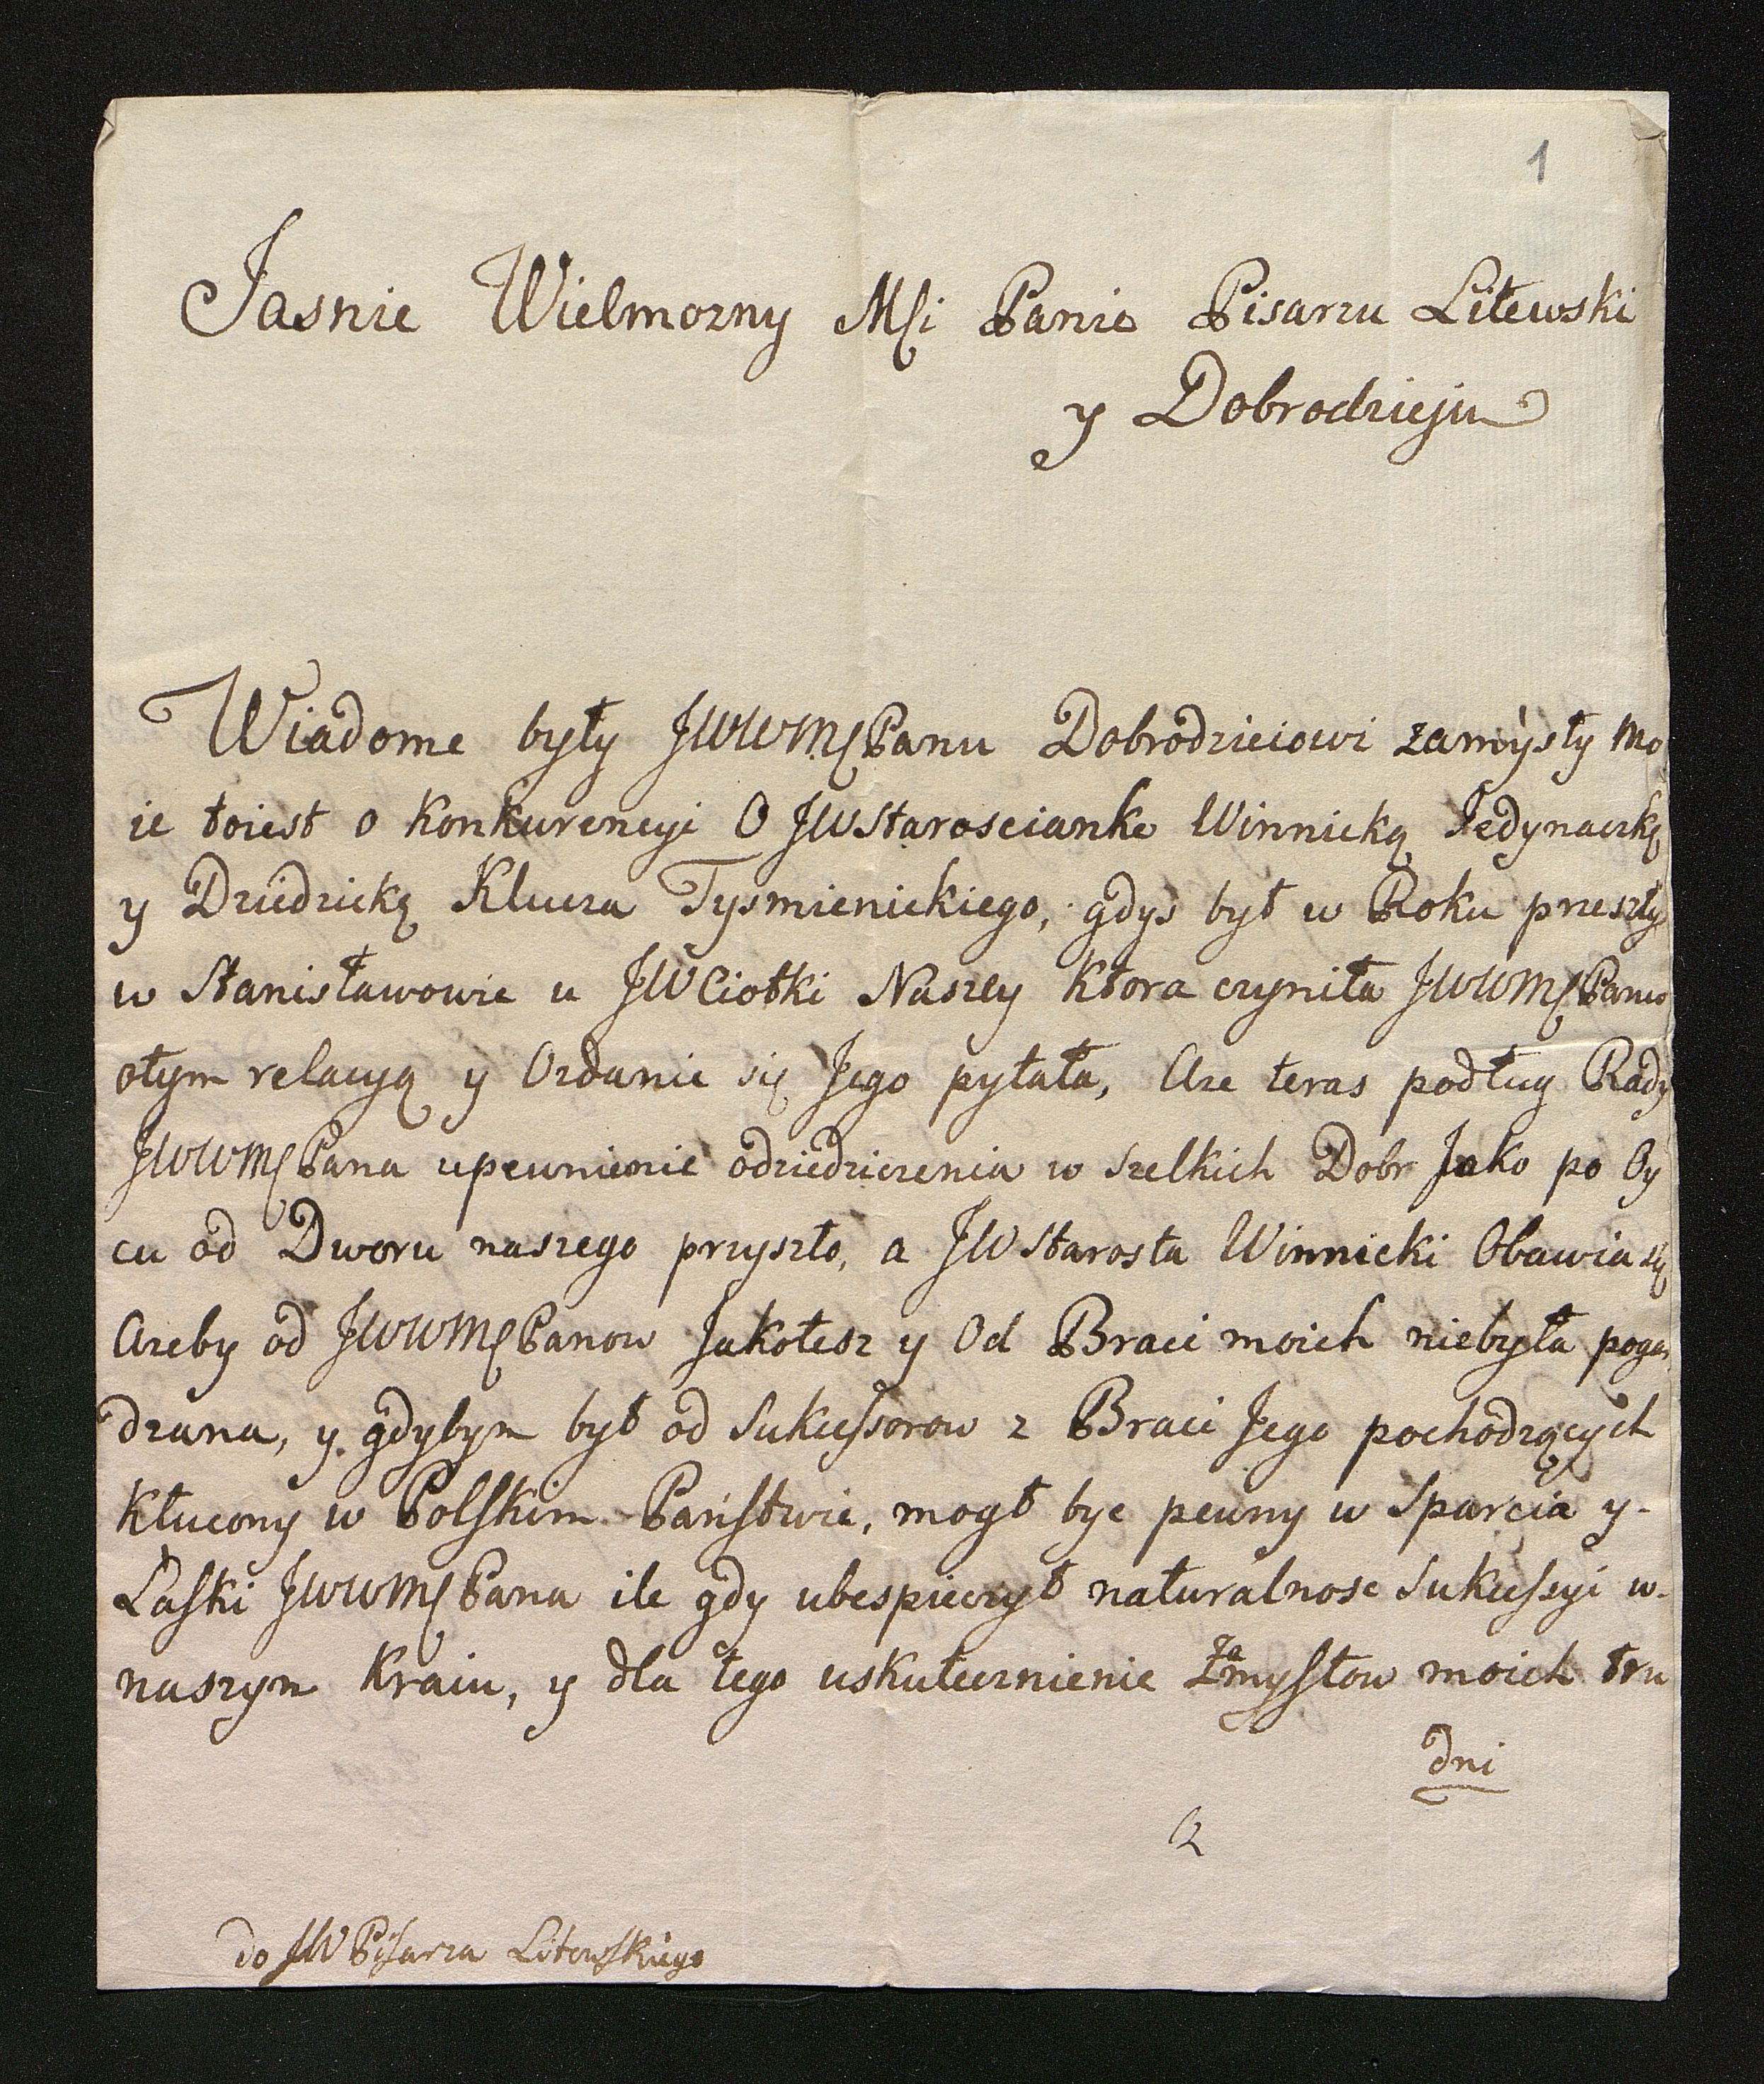 1
Jasnie Wielmozny Mſi Panie Pisarzu Litewski
y Dobrodzieju
Wiadome były JWWMſPanu Dobrodzieiowi zamysły mo
ie toiest o Konkurencyi O JWStarosciankę Winnicką Jedynaczkę
y Dziedzicką Klucza Tysmienickiego, gdys był w Roku przeszły
w Stanisławowie u JWCiotki Naszey Ktora czyniła JWWMſPanu
otym relacyą y Ozdanie się Jego pytała, Aże teras podług Rady
JWWMſPana upewnienie odziedziczenia w szelkich Dobr Jako po Oy
cu od Dworu naszego przyszło, a JWStarosta Winnicki Obawia się
Azeby od JWWMſPanow Jakotesz y Od Braci moich niebyła pogar
dzana, y gdybym był od Sukceſsorow z Braci Jego pochodzących
Kłucony w Polſkim Pańſtwie, mogł byc pewny w Sparcia y-
Łaſki JWWMſPana ile gdy ubespieczył naturalnosc Sukceſsyi w-
naszym Kraiu, y dla tego uskutecznienie Zamyſłow moich tru
dni
do JWPiſarza Litewſkiego